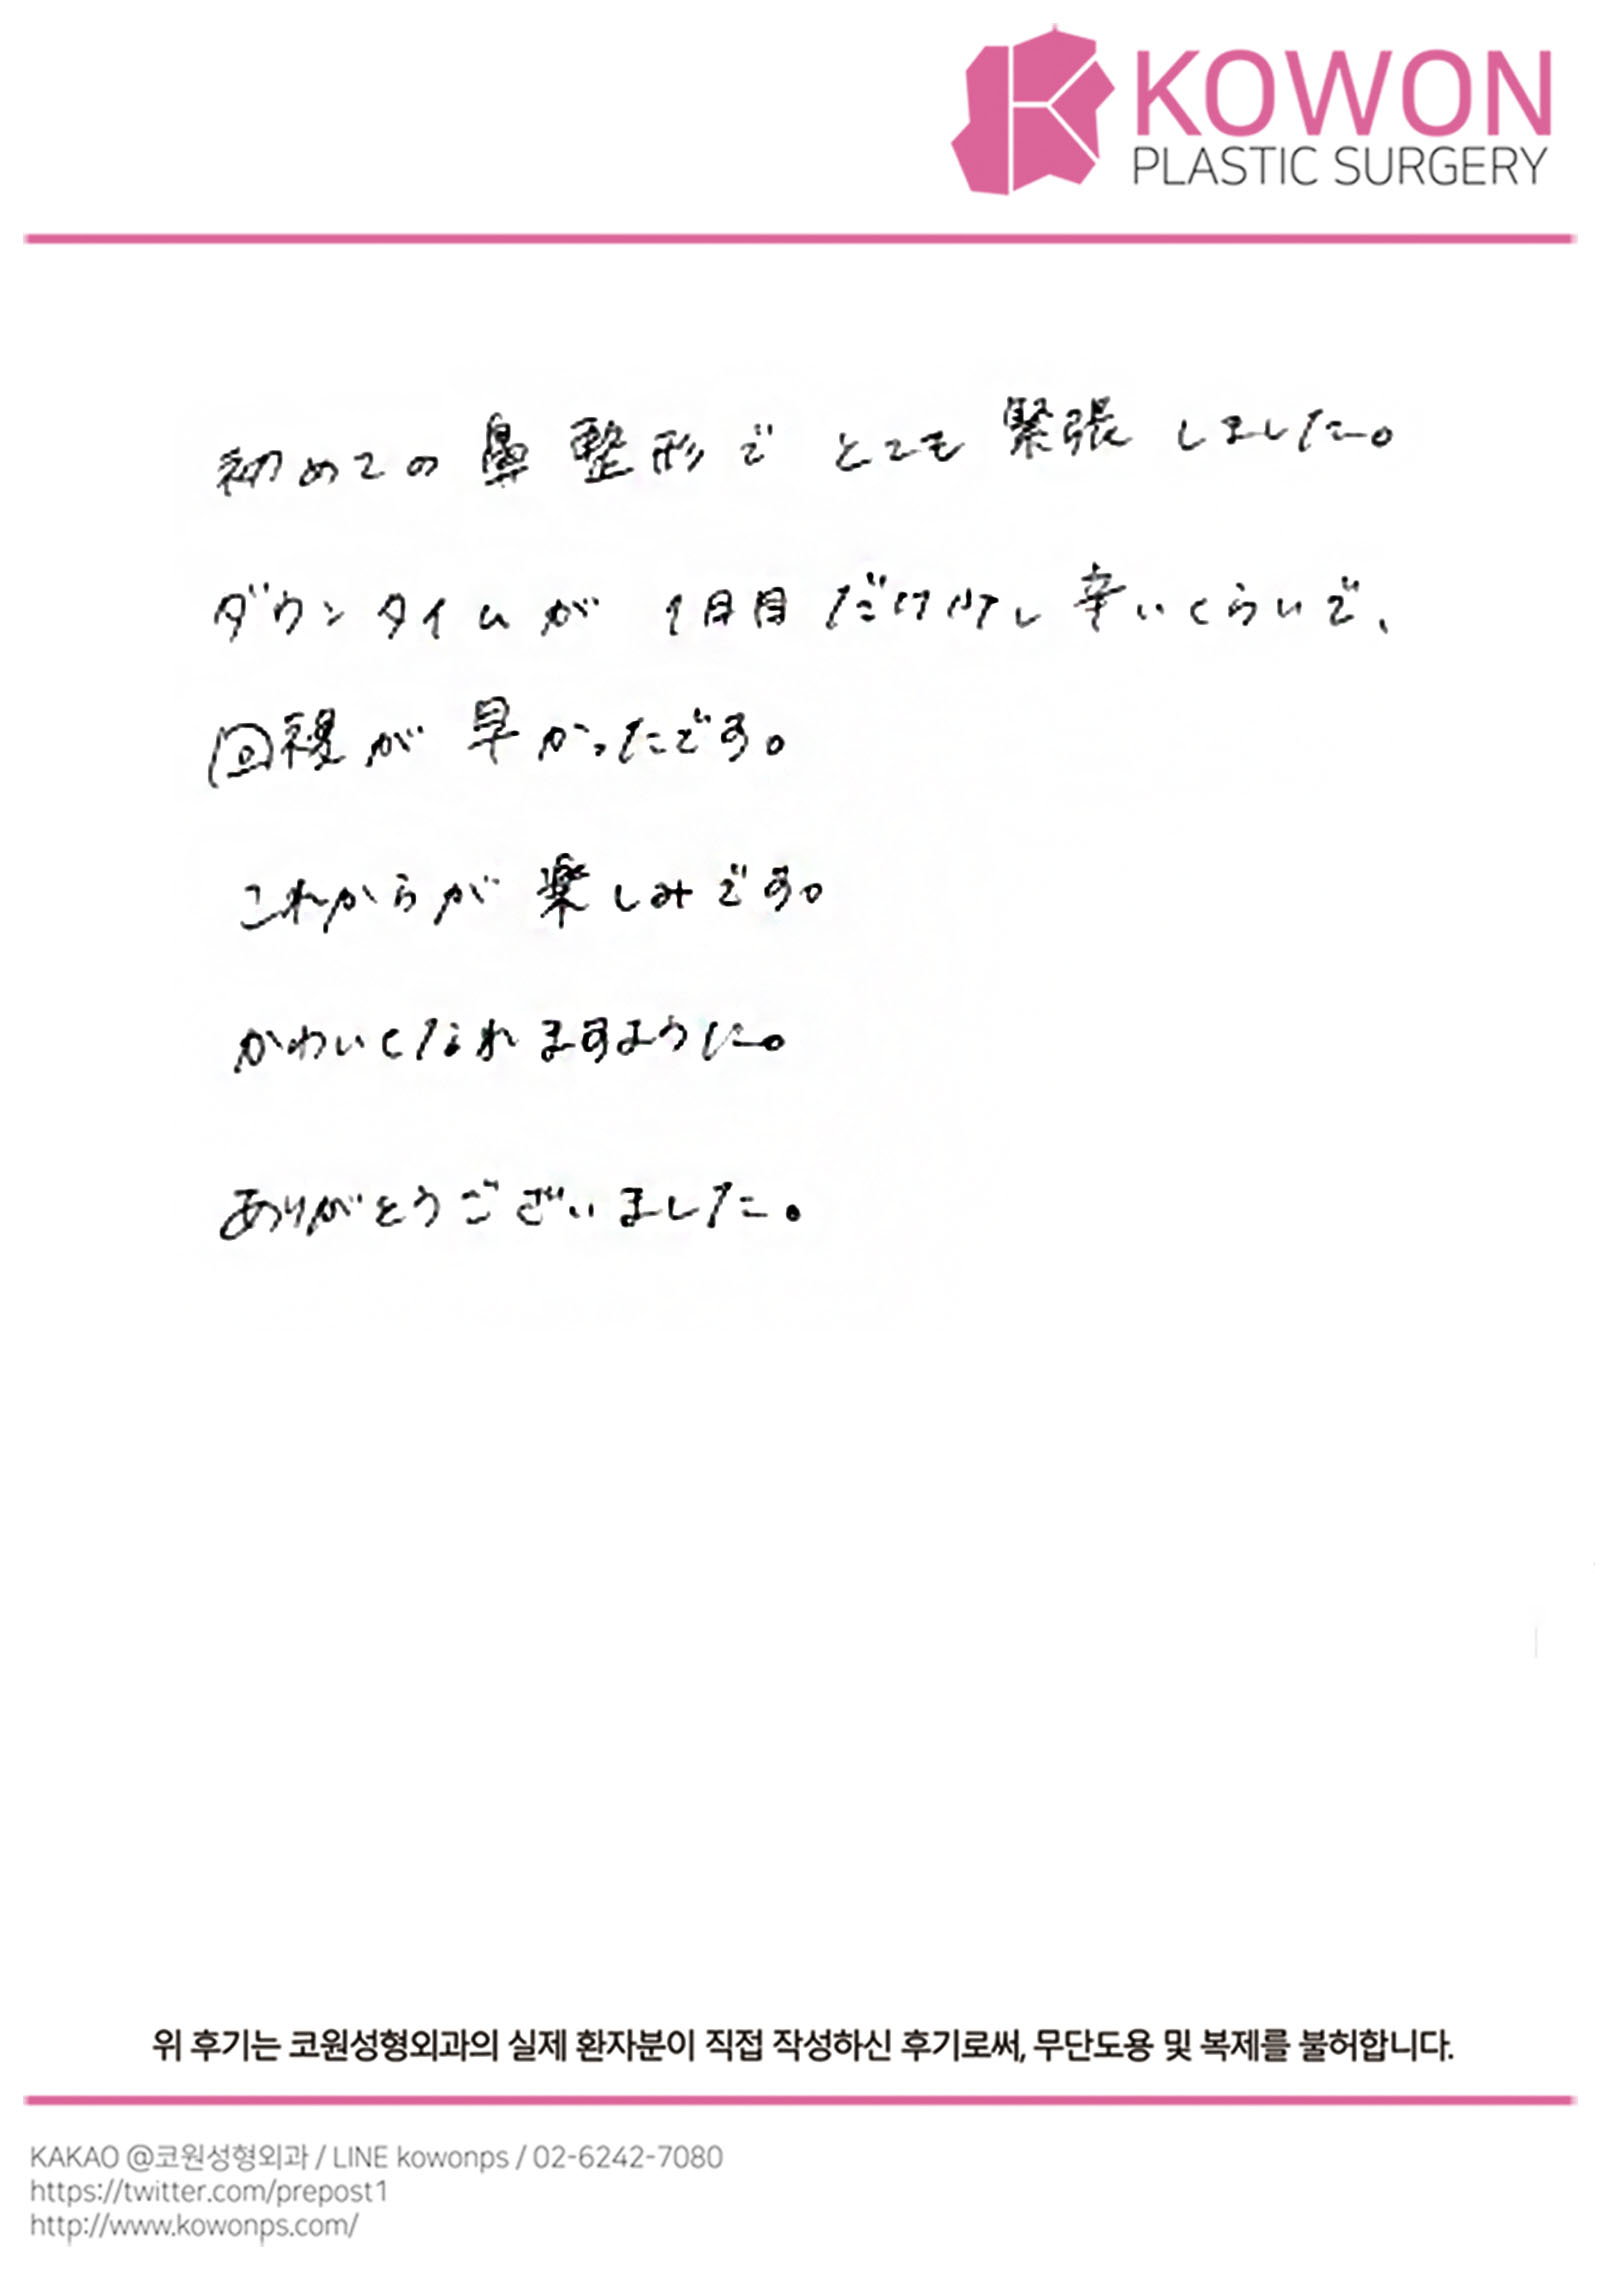 KOWON
PLASTIC SURGERY
初めての鼻整形で とても 緊張 しました。
ダウンタイムが 1日目 だけ少し 辛いくらいで、
回復が 早かったです。
これからが 楽しみです。
かわいくなれますように。
ありがとうございました。
위 후기는 코원성형외과의 실제 환자분이 직접 작성하신 후기로써, 무단도용 및 복제를 불허합니다.
KAKAO @코원성형외과 / LINE kowonps / 02-6242-7080
https://twitter.com/prepost1
http://www.kowonps.com/